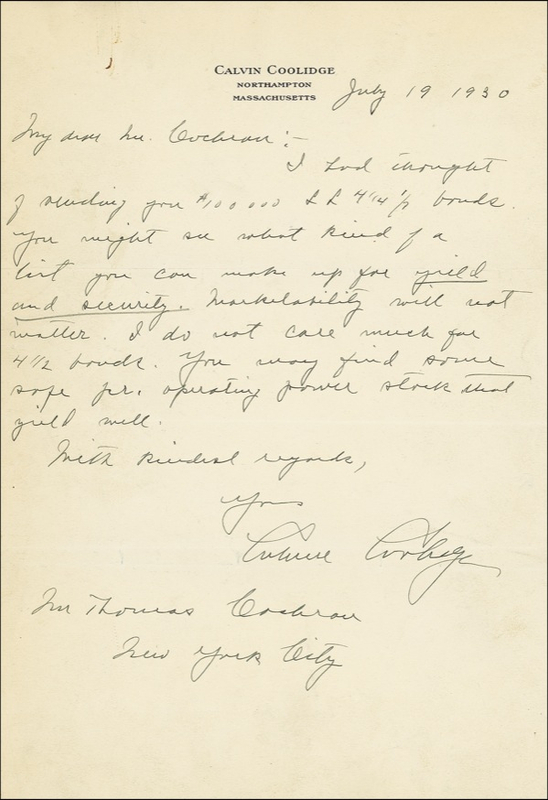 CALVIN COOLIDGE
NORTHAMPTON
MASSACHUSETTS
July 19 1930
My dear Mr. Cochran:-
I had thought
of sending you $100000 L L 4 1/4 bonds.
You might see what kind of a
list you can make up for yield
and security. Marketability will not
matter. I do not care much for
4 1/2 bonds. You may find some
safe pr. operating power stock that
yield well.
With kindest regards,
Yours
Calvin Coolidge
Mr Thomas Cochran
New York City